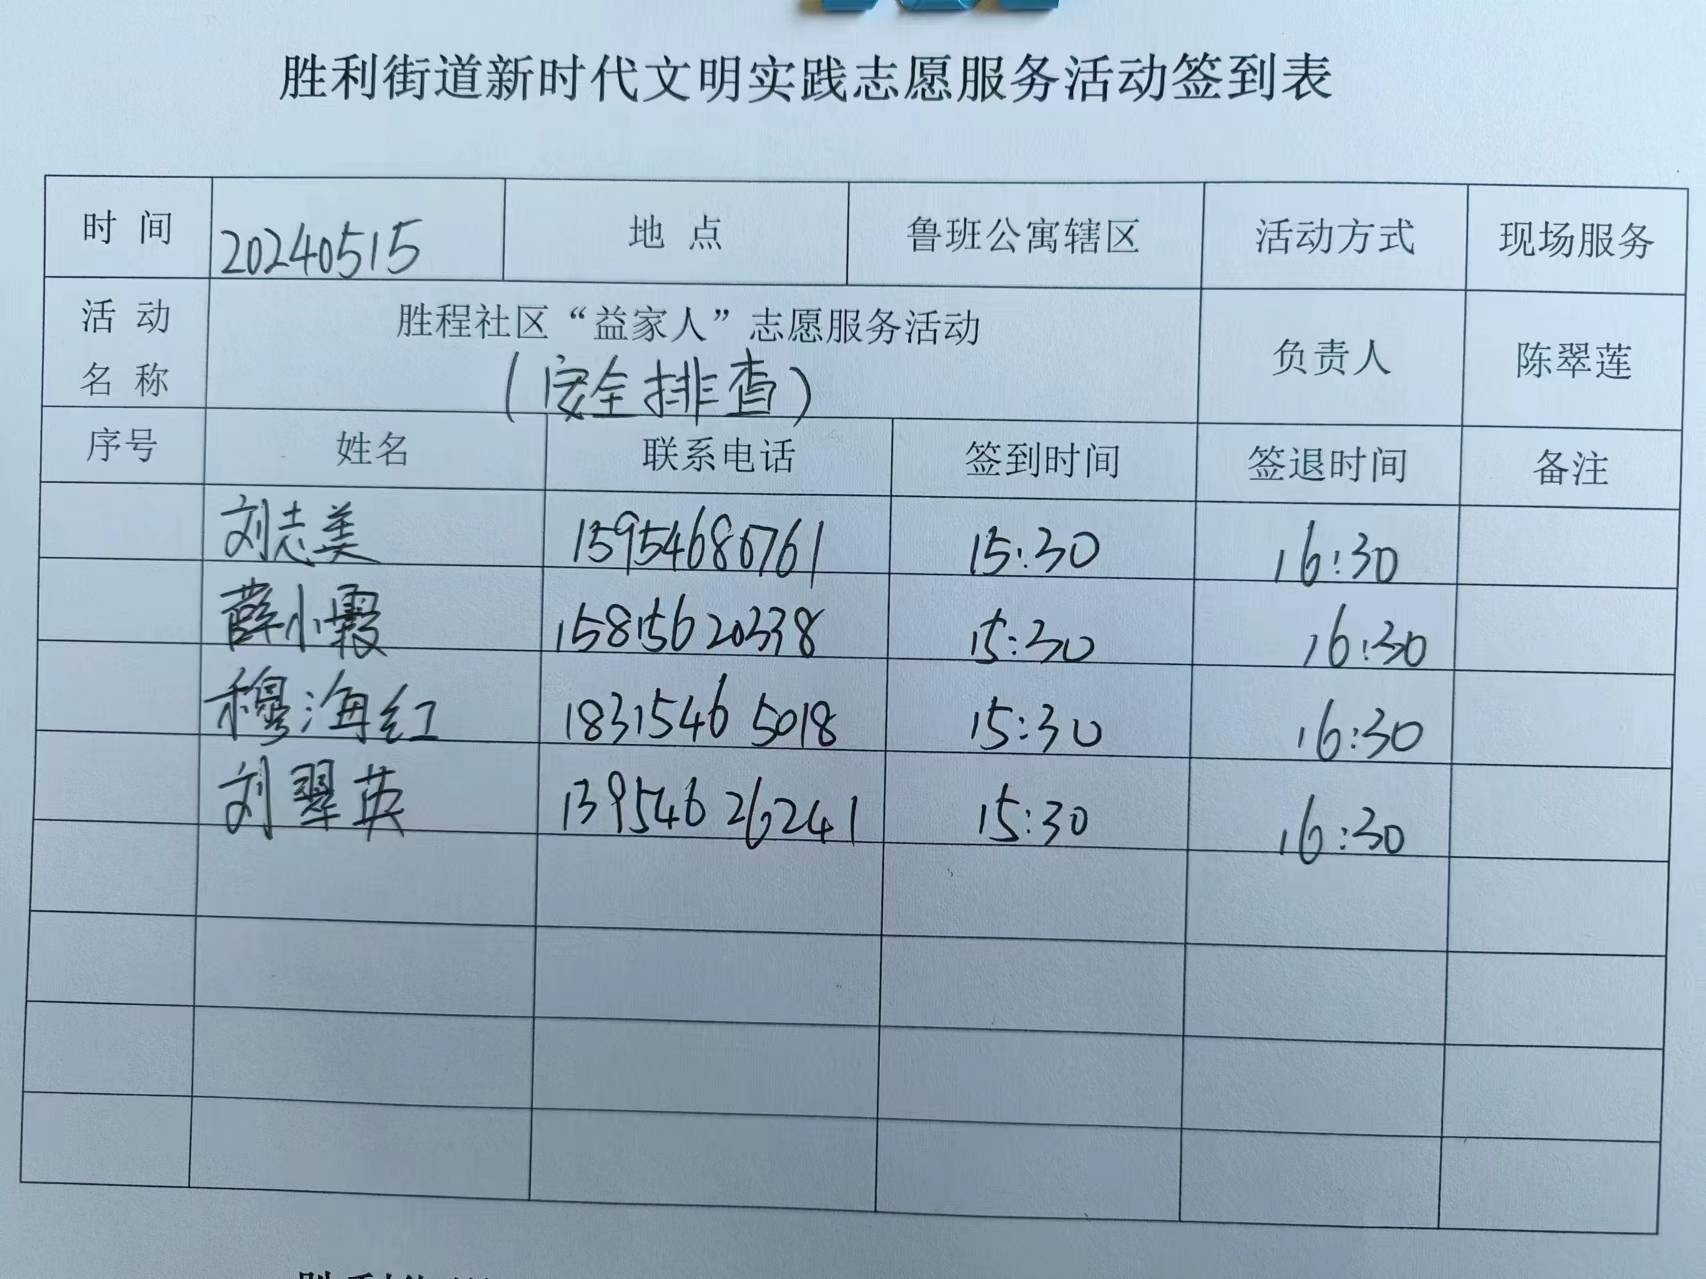 胜利街道新时代文明实践志愿服务活动签到表
时 间 20240515 地 点 鲁班公寓辖区 活动方式 现场服务
活 动 名 称 胜程社区“益家人”志愿服务活动 负责人 陈翠莲
(安全排查)
序号 姓名 联系电话 签到时间 签退时间 备注
刘志美 15954686761 15:30 16:30
薛小霞 15815620338 15:30 16:30
穆海红 18315465018 15:30 16:30
刘翠英 13954626241 15:30 16:30